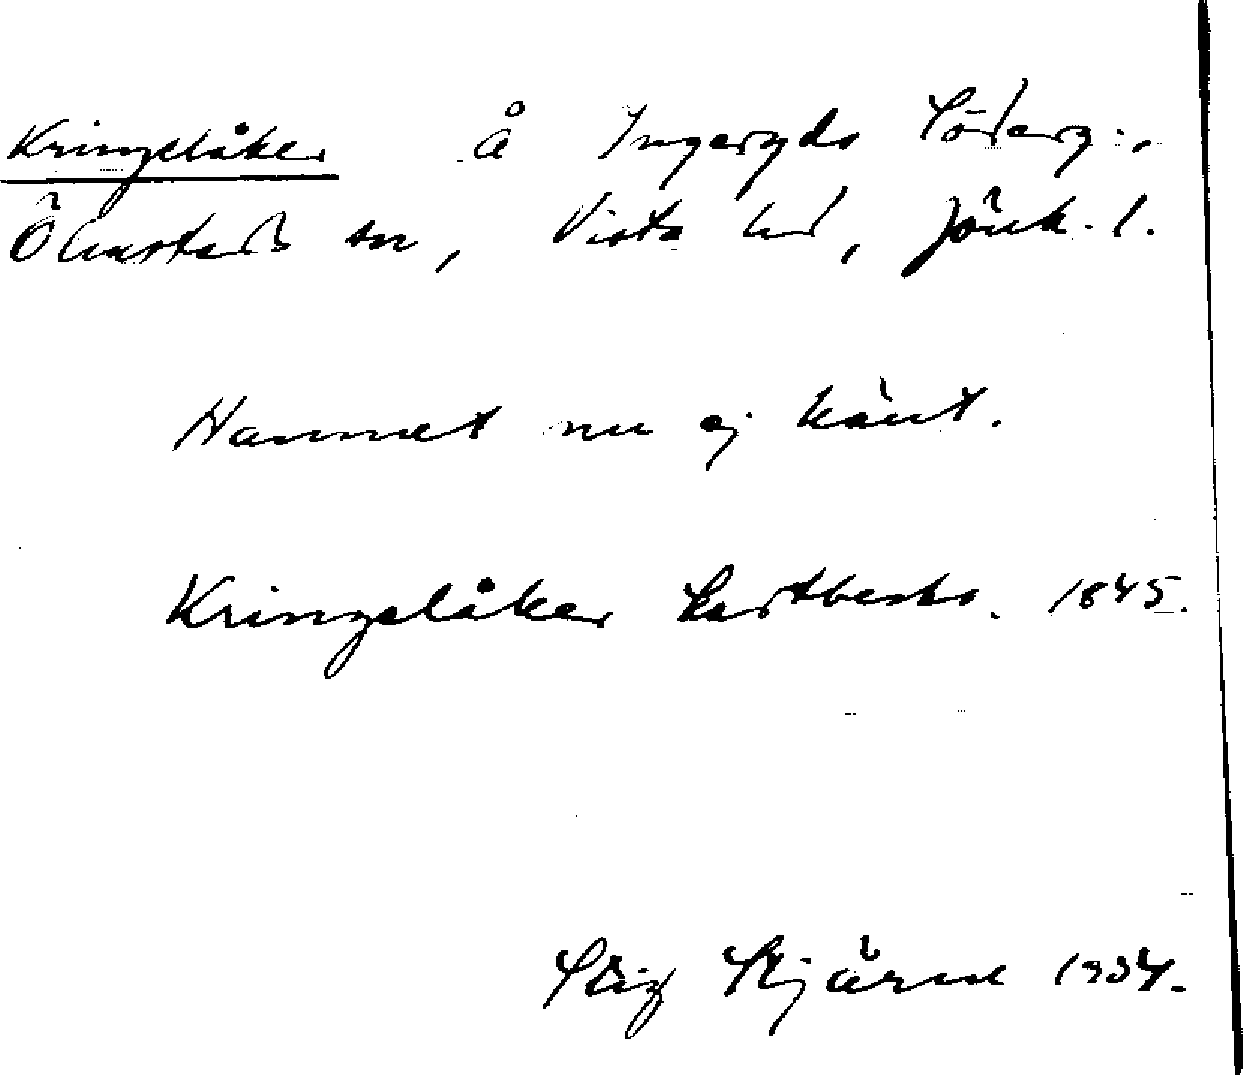 Kringelåker å Ingeryds Söderg.,
Ölmstads sn, Vista hd, Jönk. l.
Namnet nu ej känt.
Kringelåker kartbeskr. 1845.
Stig Stjärne 1934.